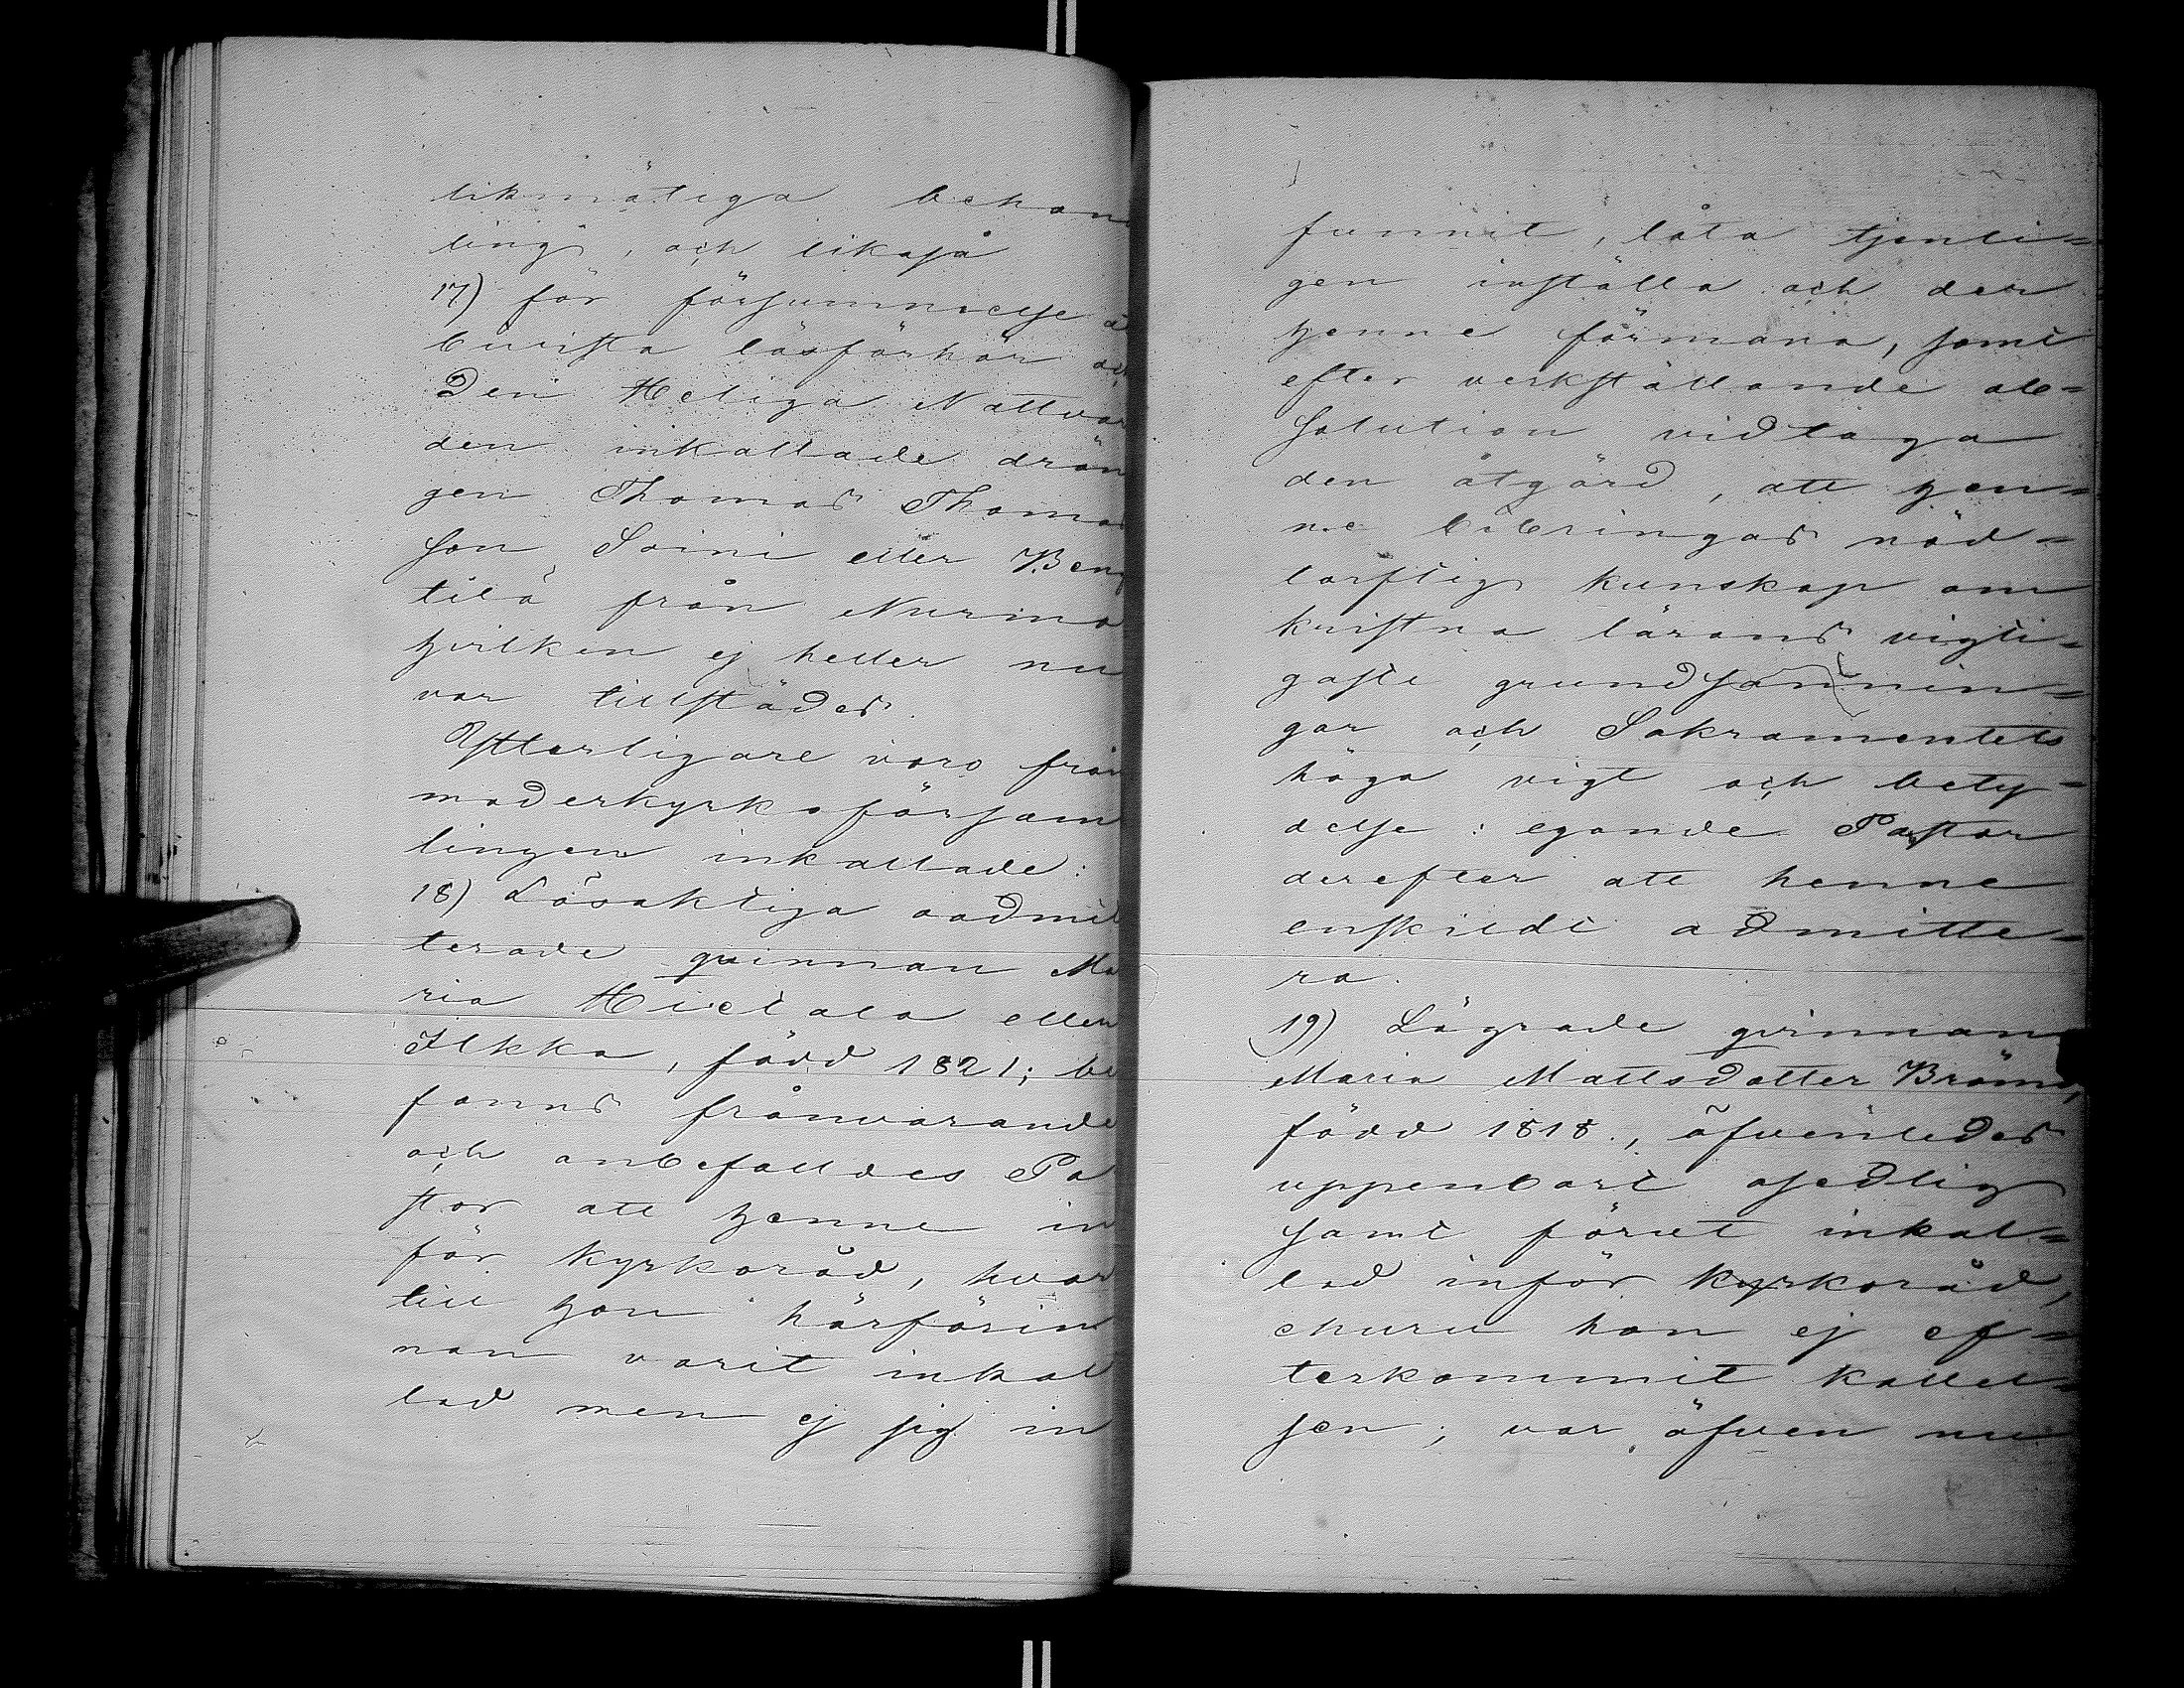 likmätiga behan
ling, och likaså
17) för försummelse å
bevista läsförhör och
Den Heliga Nattvar
den inkallade drän
gen Thomas Thomas
son Soini eller Beng
tilä från Nurmo
hvilken ej heller nu
var tillstädes.
Ytterligare voro från
moderkyrkoförsam
lingen inkallade:
18) Lösaktiga oadmit
terade qvinnan Ma
ria Hietala eller
Ilkka, född 1821; be
fanns frånvarande
och anbefalldes Pa
stor att henne in
för Kyrkoråd, hvar
till hon härförin
nan varit inkal
lad men ej sig in
funnit, låta tjenli=
gen inställa och der
henne förmana, samt
efter verkställande ab=
solution vidtaga
den åtgärd, att hen=
ne bibringas nöd=
torftig kunskap om
kristna lärans vigti=
gaste grundsannin=
gar och Sakramentets
höga vigt och bety=
delse: egande Pastor
derefter att henne
enskildt admitte=
ra.
19) Lägrade qvinnan
Maria Mattsdotter Bröms,
född 1818., äfvenledes
uppenbart osedlig
samt förut inkal=
lad inför Kyrkoråd,
ehuru hon ej ef=
terkommit kallel=
sen; var äfven nu